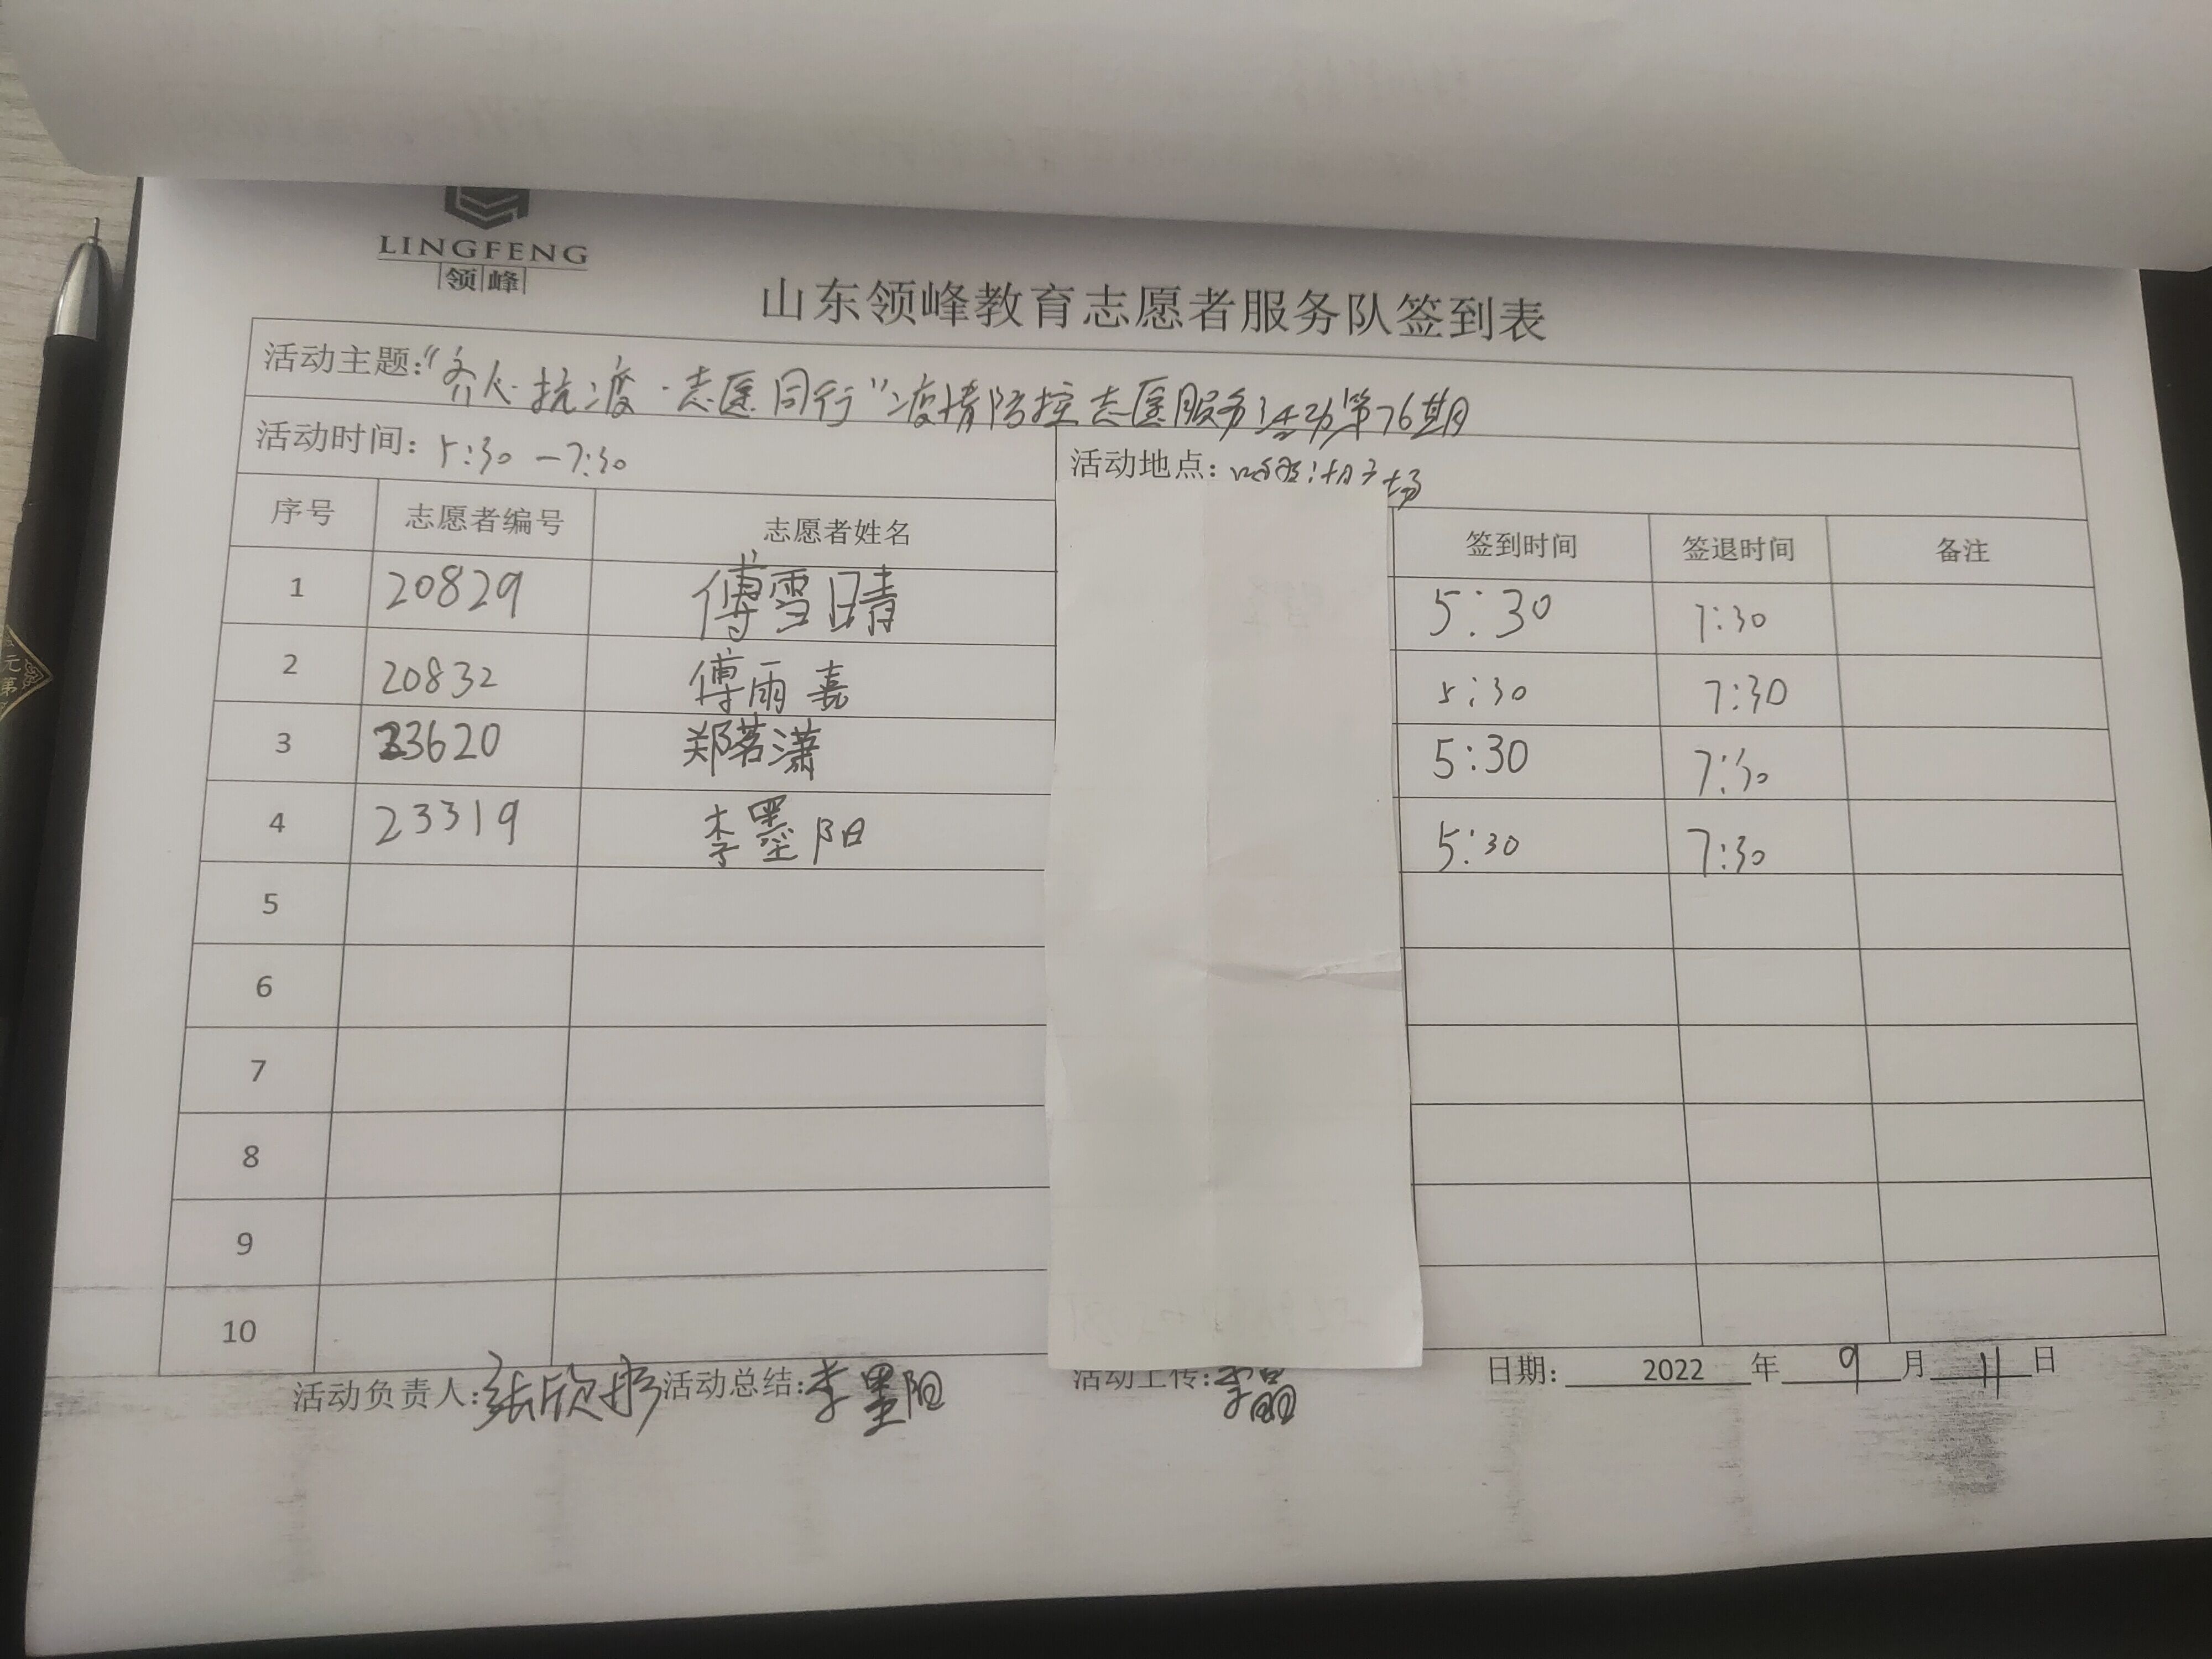 LINGFENG
领峰
山东领峰教育志愿者服务队签到表
活动主题:“齐心抗疫·志愿同行”疫情防控志愿服务活动第76期
活动时间: 5:30 —7:30 活动地点:
序号 志愿者编号 志愿者姓名 签到时间 签退时间 备注
1 20829 傅雪晴 5:30 7:30
2 20832 傅雨嘉 5:30 7:30
3 23620 郑茗潇 5:30 7:30
4 23319 李墨阳 5:30 7:30
5
6
7
8
9
10
活动负责人: 张欣 活动总结: 李墨阳 活动上传: 日期: 2022 年 9 月 11 日
元
第